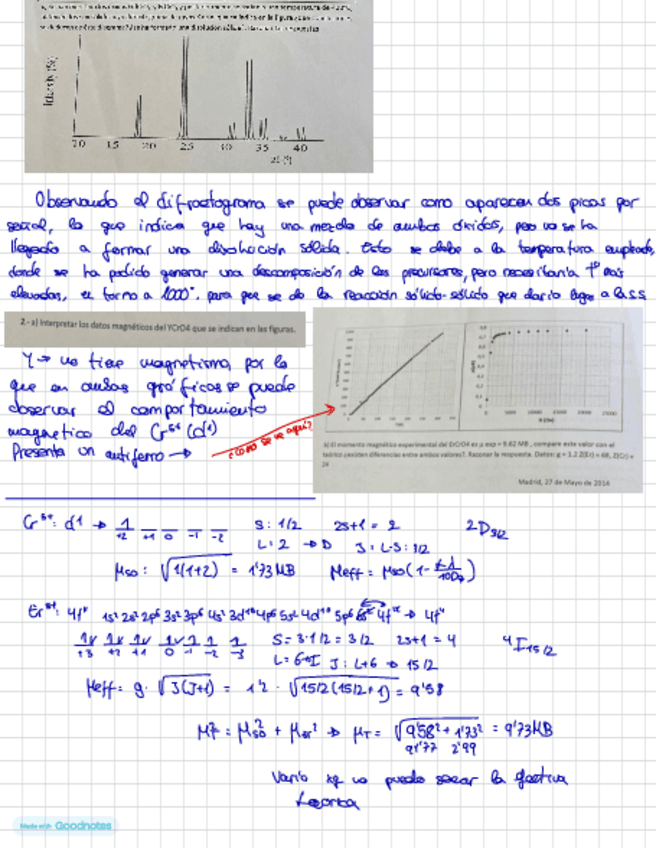 Intensity (%)
10 15 20 25 30 35 40
Observando el difractograma se puede observar como aparecen dos picos por
señal, lo que indica que hay una mezcla de ambos óxidos, pero no se ha
llegado a formar una disolución sólida. Esto se debe a la temperatura empleada,
donde se ha podido generar una descomposición de los precursores, pero necesitaría Tª más
elevadas, en torno a 1000°. para que se de la reacción sólido-sólido que daría lugar a la s.s
2.- a) Interpretar los datos magnéticos del YCrO4 que se indican en las figuras.
Y → no tiene magnetismo, por lo
que en ambas gráficas se puede
observar el comportamiento
magnetico del Cr5+ (d1)
Presenta un antiferro →
¿como se ve aquí?
b) El momento magnético experimental del ErCrO4 es μ exp = 9.62 MB, compare este valor con el
teórico ¿existen diferencias entre ambos valores?. Razonar la respuesta. Datos: g = 1.2 Z(Er) = 68, Z(Cr) =
24
Madrid, 27 de Mayo de 2014
Cr5+: d1 → 1
+2 +1 0 -1 -2
S: 1/2 2S+1 = 2 2D3/2
L: 2 → D J: L-S: 3/2
μso: √1(1+2) = 1'73 MB μeff = μso(1-αλ/10Dq)
Er3+: 4f11 1s2 2s2 2p6 3s2 3p6 4s2 3d10 4p6 5s2 4d10 5p6 6s2 4f12 → 4f11
+3 +2 +1 0 -1 -2 -3
S = 3·1/2 = 3/2 2S+1 = 4 4I15/2
L = 6→I J: L+S → 15/2
μeff = g·√J(J+1) = 1'2 · √15/2(15/2+1) = 9'58
μT2 = μso2 + μer2 → μT = √9'582 + 1'732 = 9'73 MB
91'77 2'99
Varía xq no puedo sacar la efectiva
teorica
Made with Goodnotes